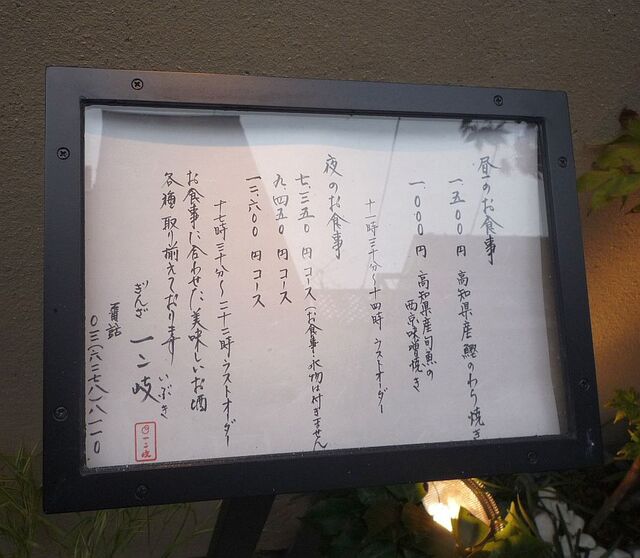 昼のお食事
一、五〇〇円 高知県産鰹のわら焼き
一、〇〇〇円 高知県産旬魚の
西京味噌焼き
十一時三十分〜十四時 ラストオーダー
夜のお食事
七、三五〇円コース(お食事・水物は付きません
九、四五〇円コース
一三、六〇〇円コース
十七時三十分〜二十二時ラストオーダー
お食事に合わせた美味しいお酒
各種取り揃えております
いぶき
ぎんざ 一二岐
電話
〇三(六二七八)八一一〇